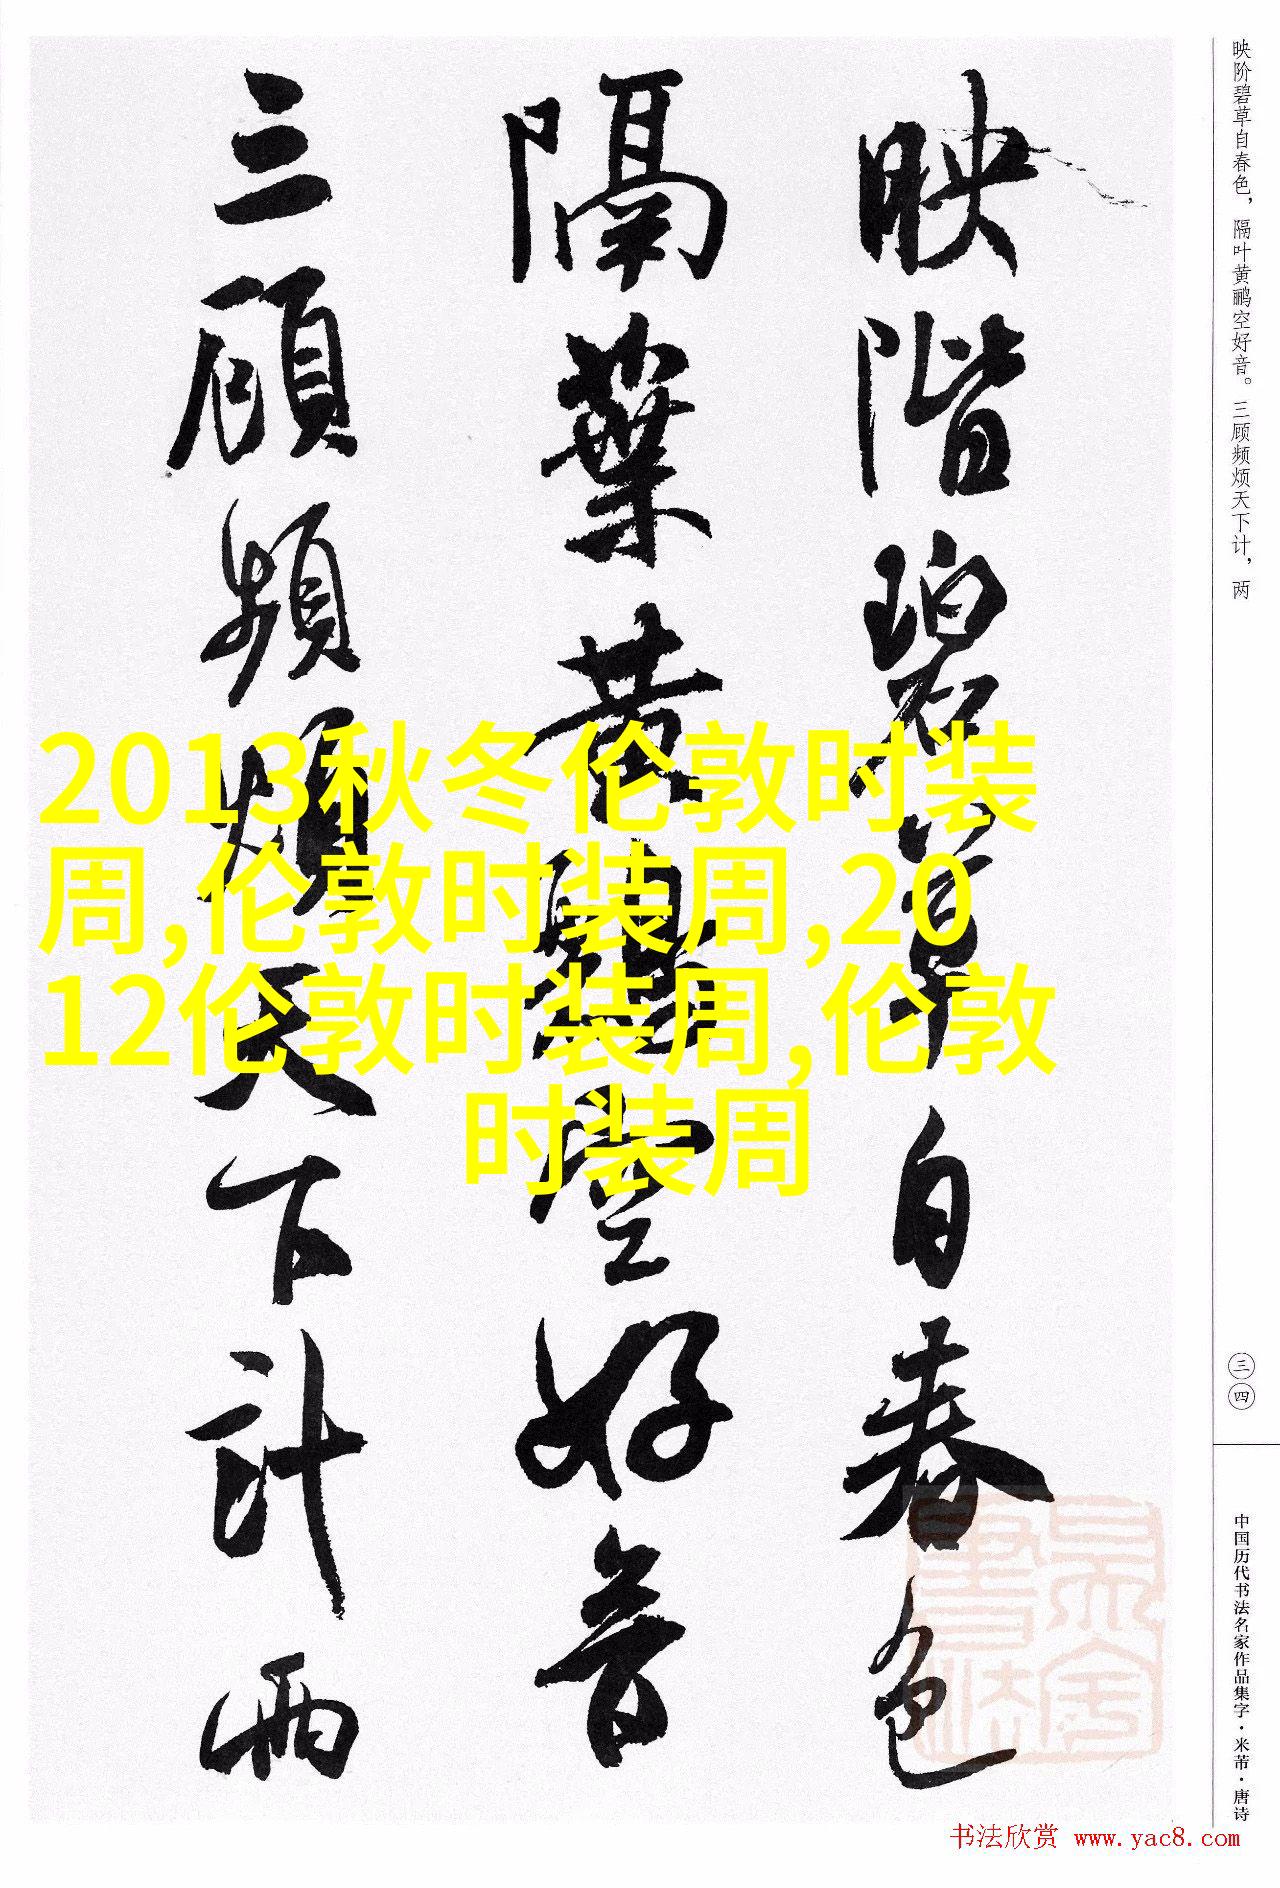 映階碧草自春色
隔葉黄鸝空好音
三顧頻煩天下計兩
映阶碧草自春色，隔叶黄鹂空好音。三顾频烦天下计，两
2013秋冬伦敦时装
周,伦敦时装周,20
12伦敦时装周,伦敦
时装周
三四
中国历代书法名家作品集字·米芾·唐诗
书法欣赏 www.yac8.com